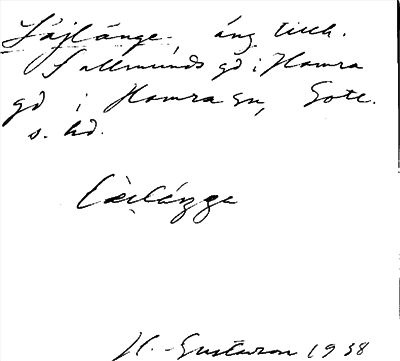 Läjlänge, äng till
Sallmunds gd i Hamra
gd i Hamra sn, Gotl.
s. hd.
H. Gustavson 1938